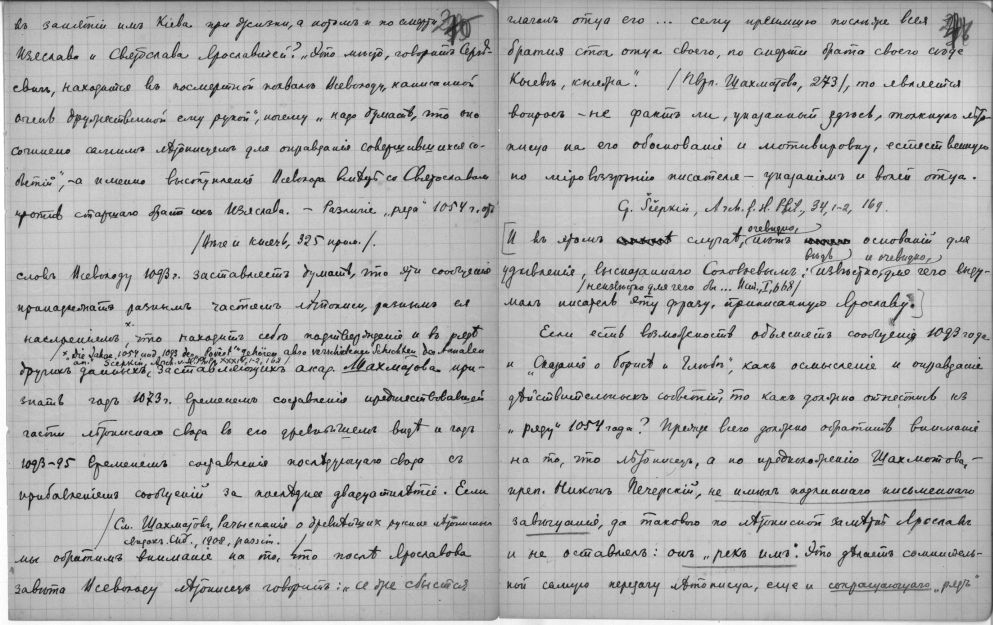 въ занятіи имъ Кіева при жизни, а потомъ и по смерти
Изяслава и Святослава Ярославичей? „Это мѣсто, говоритъ Сергѣ-
евичъ, находится въ посмертной похвалѣ Всеволоду, написанной
очень дружественной ему рукой", почему „надо думать, что оно
сочинено самимъ лѣтописцемъ для оправданія совершившихся со-
бытій", – а именно выступленія Всеволода вмѣстѣ со Святославомъ
противъ старшаго брата ихъ Изяслава. – Различіе „ряда" 1054 г. отъ
/Вѣче и князь, 325 прим./.
словъ Всеволоду 1093 г. заставляетъ думать, что эти сообщенія
принадлежатъ разнымъ частямъ лѣтописи, разнымъ ея
наслоеніямъ, что находитъ себѣ подтвержденіе и въ рядѣ
x. „Die Jahre 1054 und 1093 der „Povest" gehören also verschiedenen Schichten der Annalen
an. Ščepkin, Arch. f. Sl. Phil., XXXIV, 1-2, 169./
другихъ данныхъ, заставляющихъ акад. Шахматова при-
знать годъ 1073 г. временемъ составленія предшествовавшей
части лѣтописнаго свода въ его древнѣйшемъ видѣ и годъ
1093-95 временемъ составленія послѣдующаго свода съ
прибавленіемъ сообщеній за послѣднее двадцатилѣтіе. Если
/См. Шахматовъ, Разысканія о древнѣйшихъ русскихъ лѣтописныхъ
сводахъ. Спб., 1908, passim.
мы обратимъ вниманіе на то, что послѣ Ярославова
завѣта Всеволоду лѣтописецъ говоритъ: „се же сбысться
глаголъ отца его ... сему пріемшю послѣже всея
братия столъ отца своего, по смерти брата своего сѣде
Кыевѣ, княжа". /Изд. Шахматова, 273/, то является
вопросъ – не фактъ ли, указанный здѣсь, толкнулъ лѣто-
писца на его обоснованіе и мотивировку, естественную
по міровоззрѣнію писателя – указаніемъ и волей отца.
Ср. Ščepkin, Arch. f. Sl. Phil., 34, 1-2, 169.
[И въ этомъ случаѣ, очевидно, нѣтъ основаній для
удивленія, высказаннаго Соловьевымъ: „видъ и очевидно,
неизвѣстно, для чего выду-
/неизвѣстно для чего бы... Ист., I, 668/
малъ писатель эту фразу, приписанную Ярославу".]
Если есть возможность объяснять сообщенія 1093 года
и „Сказаніе о Борисѣ и Глѣбѣ", какъ осмысленіе и оправданіе
дѣйствительныхъ событій, то какъ должно отнестись къ
„ряду" 1054 года? Прежде всего должно обратить вниманіе
на то, что лѣтописецъ, а по предположенію Шахматова, –
преп. Никонъ Печерскій, не имѣлъ подлиннаго письменнаго
завѣщанія, да такового по лѣтописной замѣткѣ Ярославъ
и не оставлялъ: онъ „рекъ имъ". Это дѣлаетъ сомнитель-
ной самую передачу лѣтописца, еще и сокращающаго „рядъ"